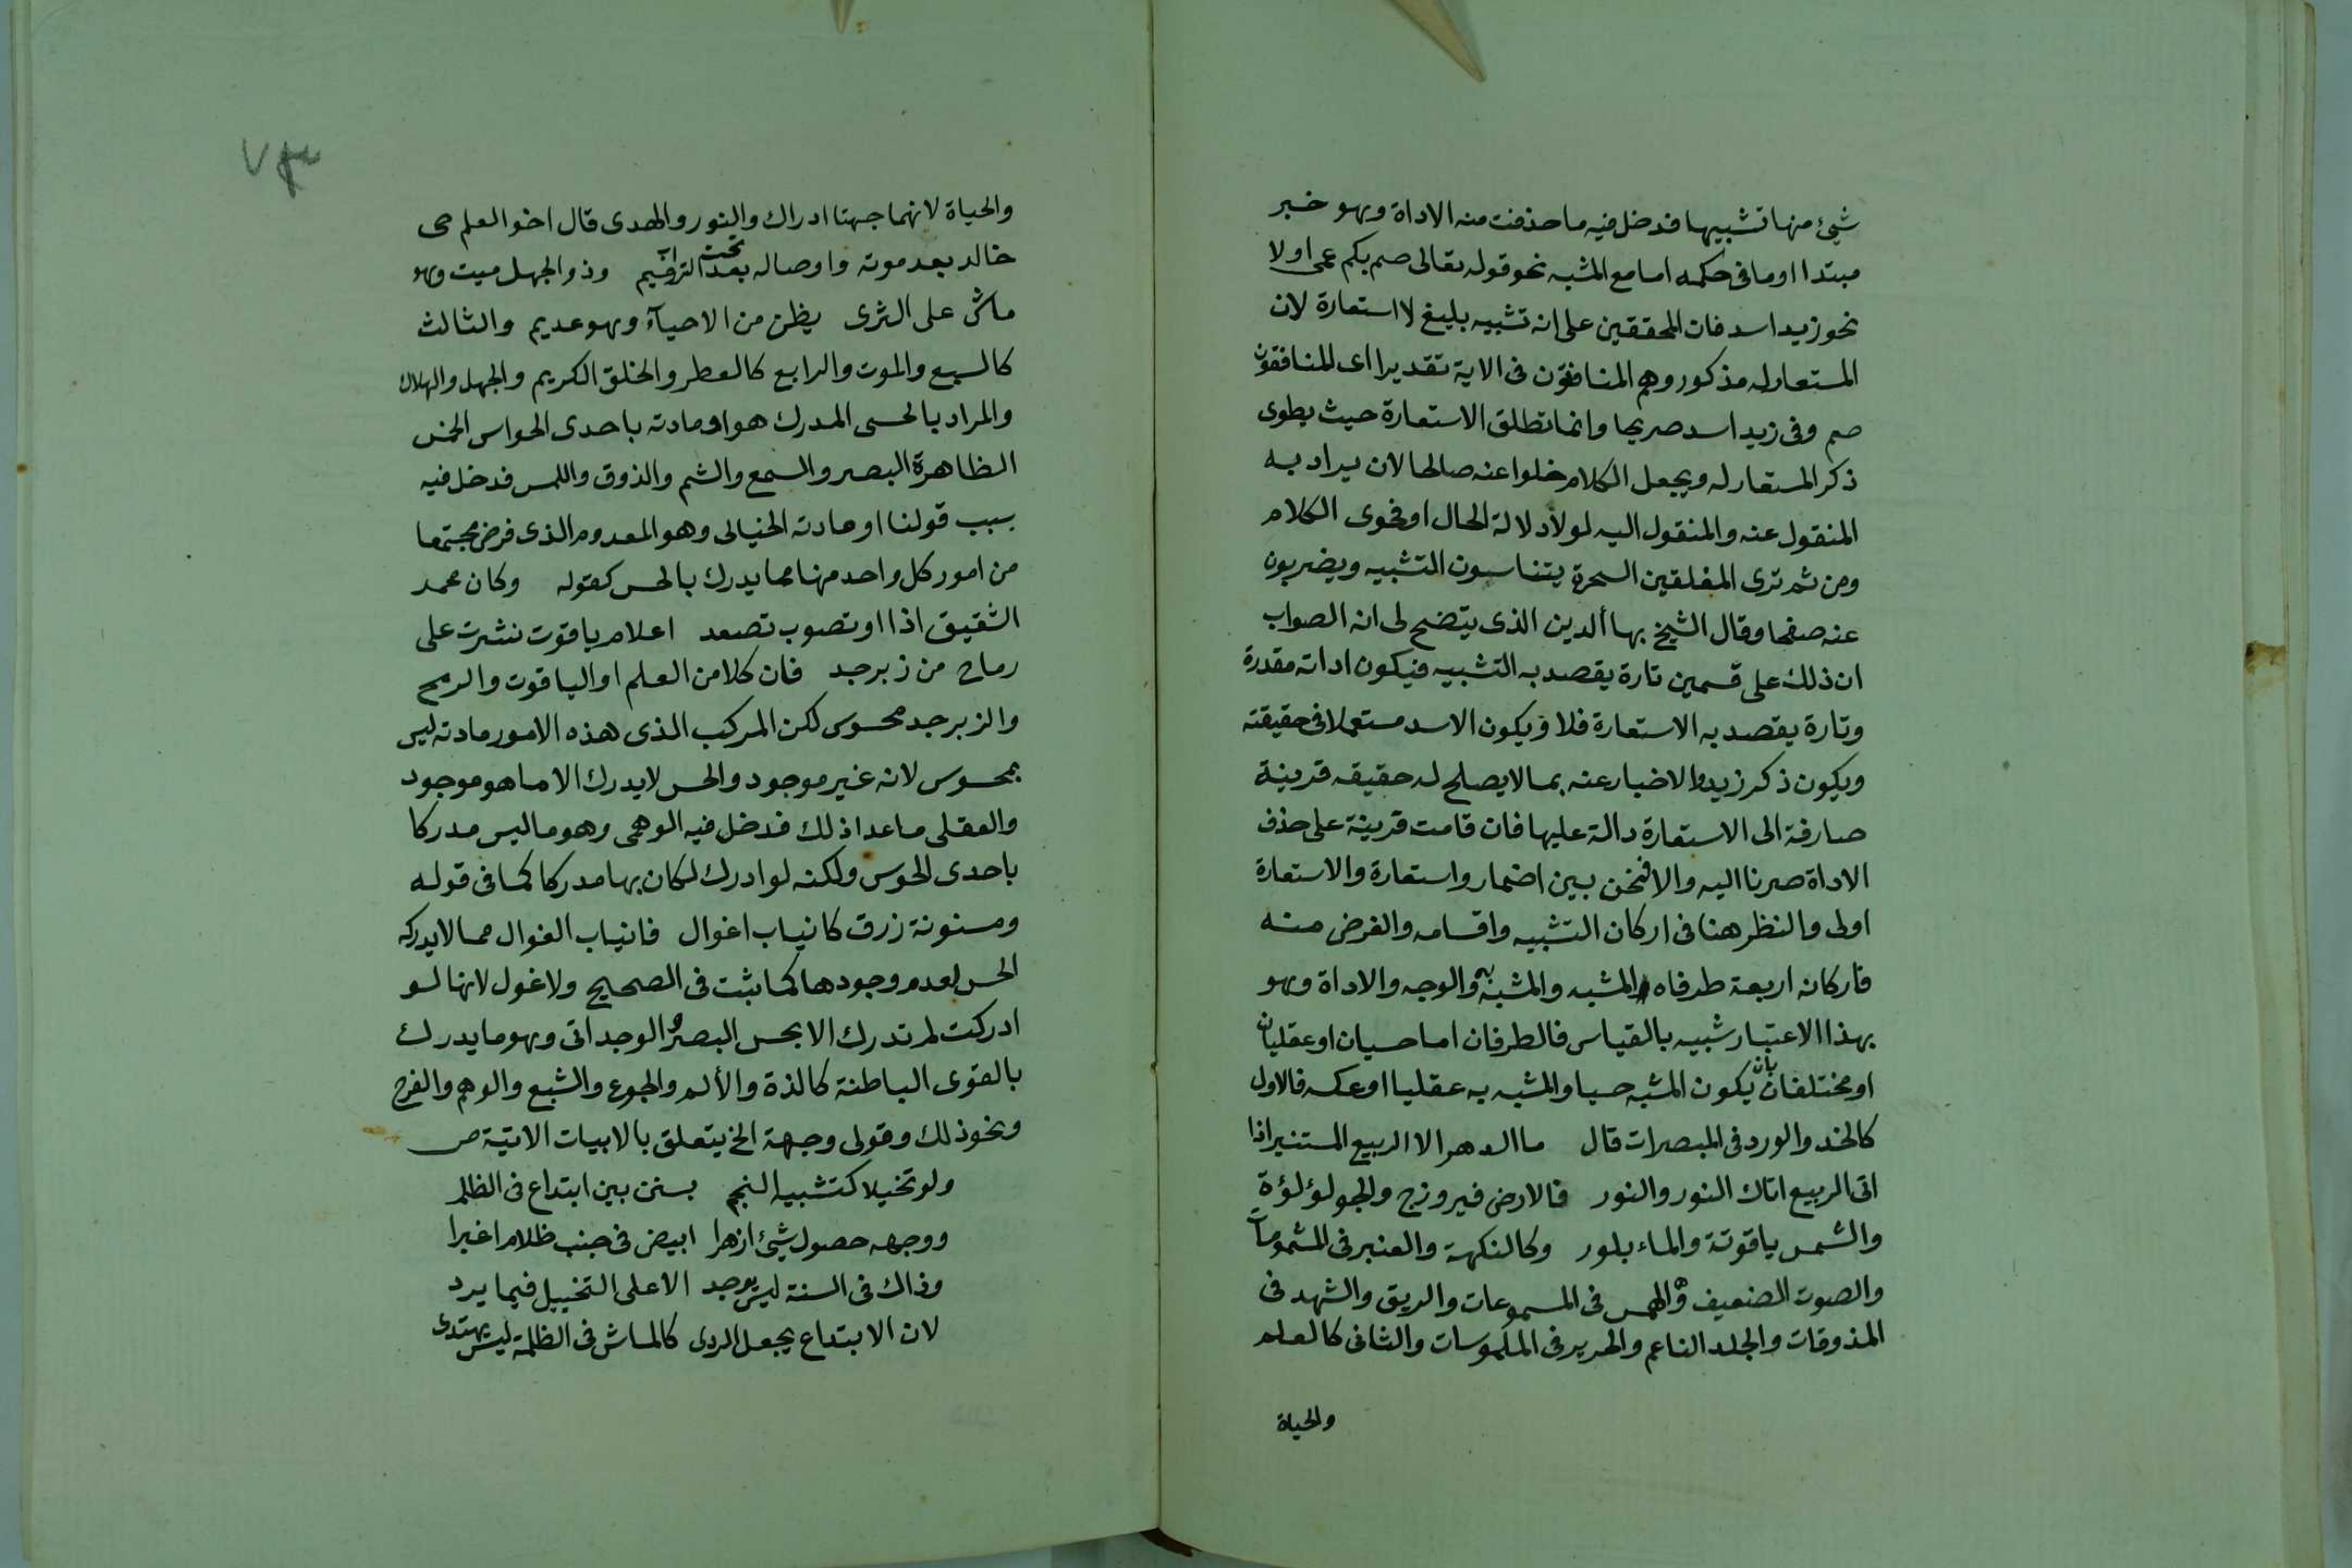 شيئ منها تشبيها فدخل فيه ما حذفت منه الاداة وهو خبر
مبتدا او ما فى حكمه اما مع المشبه نحو قوله تعالى صم بكم عمى او لا
نحو زيد اسد فان المحققين على انه تشبيه بليغ لا استعارة لان
المستعار له مذكور وهم المنافقون فى الاية تقديرا اى المنافقون
صم وفى زيد اسد صريحا وانما تطلق الاستعارة حيث يطوى
ذكر المستعار له ويجعل الكلام خلوا عنه صالحا لان يراد به
المنقول عنه والمنقول اليه لولا دلالة الحال او فحوى الكلام
ومن ثم ترى المفلقين السحرة يتناسون التشبيه ويضربون
عنه صفحا وقال الشيخ بهاأ الدين الذى يتضح لى انه الصواب
ان ذلك على قسمين تارة يقصد به التشبيه فيكون اداته مقدرة
وتارة يقصد به الاستعارة فلا ويكون الاسد مستعملا فى حقيقته
ويكون ذكر زيد والاخبار عنه بما لا يصلح له حقيقه قرينة
صارفة الى الاستعارة دالة عليها فان قامت قرينة على حذف
الاداة صرنا اليه والا فنحن بين اضمار واستعارة والاستعارة
اولى والنظر هنا فى اركان التشبيه واقسامه والغرض منه
فاركانه اربعة طرفاه المشبه والمشبه به والوجه والاداة وهو
بهذا الاعتبار شبيه بالقياس فالطرفان اما حسيان او عقليان
او مختلفان بان يكون المشبه حسيا والمشبه به عقليا او عكسه فالاول
كالخد والورد فى المبصرات قال ما الدهر الا الربيع المستنير اذا
اتى الربيع اتاك النور والنور فالارض فيروزج والجو لؤلؤة
والشمس ياقوتة والماء بلور وكالنكهة والعنبر فى المشمومات
والصوت الضعيف والهمس فى المسموعات والريق والشهد فى
المذوقات والجلد الناعم والحرير فى الملموسات والثانى كالعلم
والحياة
٧٣
والحياة لانهما جهتا ادراك والنور والهدى قال اخو العلم حى
خالد بعد موته واوصاله بعد تحت التراب رميم وذو الجهل ميت وهو
ماش على الثرى يظن من الاحيآء وهو عديم والثالث
كالسبع والموت والرابع كالعطر والخلق الكريم والجهل والهلاك
والمراد بالحسى المدرك هو او مادته باحدى الحواس الخمس
الظاهرة البصر والسمع والشم والذوق واللمس فدخل فيه
بسبب قولنا او مادته الخيالى وهو المعدوم الذى فرض مجتمعا
من امور كل واحد منها مما يدرك بالحس كقوله وكان محمر
الشقيق اذا او تصوب تصعد اعلام ياقوت نشرت على
رماح من زبرجد فان كلا من العلم او الياقوت والرمح
والزبرجد محسوس لكن المركب الذى هذه الامور مادته ليس
بمحسوس لانه غير موجود والحس لا يدرك الا ما هو موجود
والعقلى ما عدا ذلك فدخل فيه الوهمى وهو ما ليس مدركا
باحدى الحوس ولكنه لو ادرك لكان بها مدركا كما فى قوله
ومسنونة زرق كانياب اغوال فانياب الغوال مما لا يدركه
الحس لعدم وجودها كما ثبت فى الصحيح ولا غول لانها لو
ادركت لم تدرك الا بحس البصر والوجدانى وهو ما يدرك
بالقوى الباطنة كالذة والألم والجوع والشبع والوهم والفرح
ونحو ذلك وقولى وجهة الخ يتعلق بالابيات الاتية ص
ولو تخيلا كتشبيه النجم بسنن بين ابتداع فى الظلم
ووجهه حصول شيئ ازهرا ابيض فى جنب ظلام اغبرا
وذاك فى السنة ليس يوجد الا على التخييل فيما يرد
لان الابتداع يجعل الردى كالماش فى الظلمة ليس يهتدى